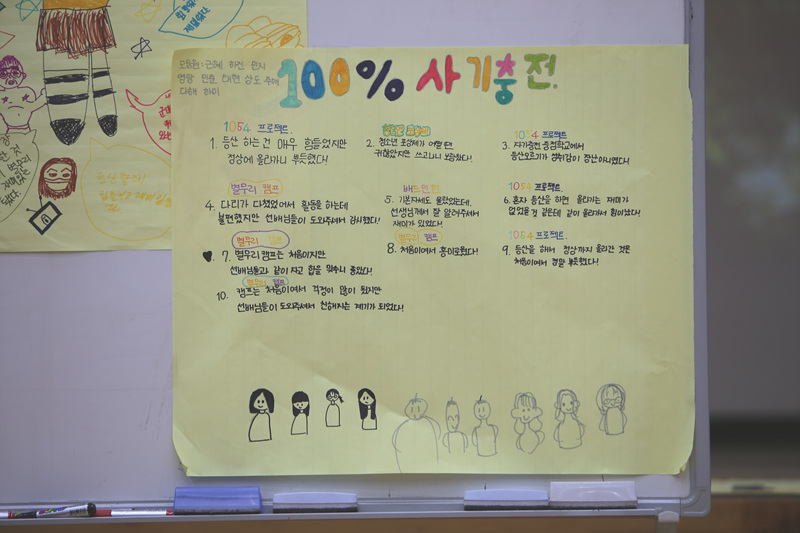 100% 사기충전.
1054 프로젝트.
1. 등산 하는건 매우 힘들었지만
정상에 올라가니 뿌듯했다!
2. 청소년
귀찮았지만 쓰고나니 보람찼다!
1054 프로젝트
3. 자가충전
등산오르기가 장난 아니였다!
별무리 캠프
4. 다리가 다쳤었어서 활동을 하는데
불편했지만 선배님들이 도와주셔서 감사했다!
배드민턴
5. 기본자세도 몰랐었는데,
선생님께서 잘 알려주셔서
재미가 있었다!
1054 프로젝트.
6. 혼자 등산을 하면 올라가는 재미가
없었을 거 같은데 같이 올라가서 힘이났다!
별무리 캠프
7. 별무리 캠프는 처음이지만
선배님들과 같이 자고 합을 맞추니 좋았다!
별무리 캠프
8. 처음이여서 흥미로웠다!
1054 프로젝트.
9. 등산을 해서 정상까지 올라간 것은
처음이여서 정말 뿌듯했다!
별무리 캠프
10. 캠프는 처음이여서 걱정이 많이 됬지만
선배님들이 도와주셔서 친해지는 계기가 되었다!